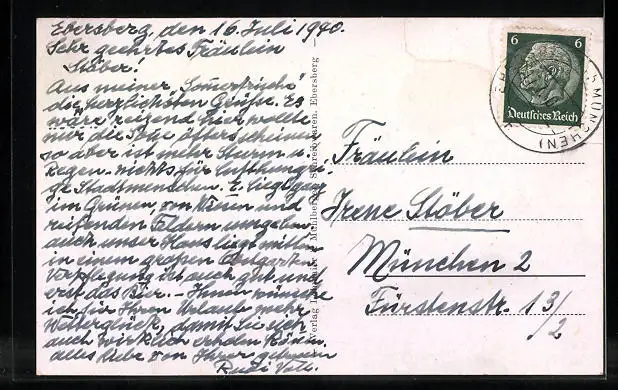 Ebersberg, den 16. Juli 1940.
Sehr geehrtes Fräulein
Stöber!
Aus meiner "Sommerfrische"
die herzlichsten Grüsse. Es
wäre reizend hier wollte
nur die Sonne öfters scheinen
so aber ist mehr Sturm u.
Regen - nichts für lufthungri-
ge Stadtmenschen. E. liegt ganz
im Grünen, von Wiesen und
reifenden Feldern umgeben
auch unser Haus liegt mitten
in einem großen Obstgarten
Verpflegung ist auch gut und
erst das Bier. - Ihnen wünsche
ich für Ihren Urlaub mehr
Wetterglück, damit Sie sich
auch wirklich erholen können.
alles Liebe von Ihrer
Rudi
Verlag Mühlberger, Schreibwaren, Ebersberg
6 6
Deutsches Reich
MÜNCHEN)
Fräulein
Irene Stöber
München 2
Fürstenstr. 13/2